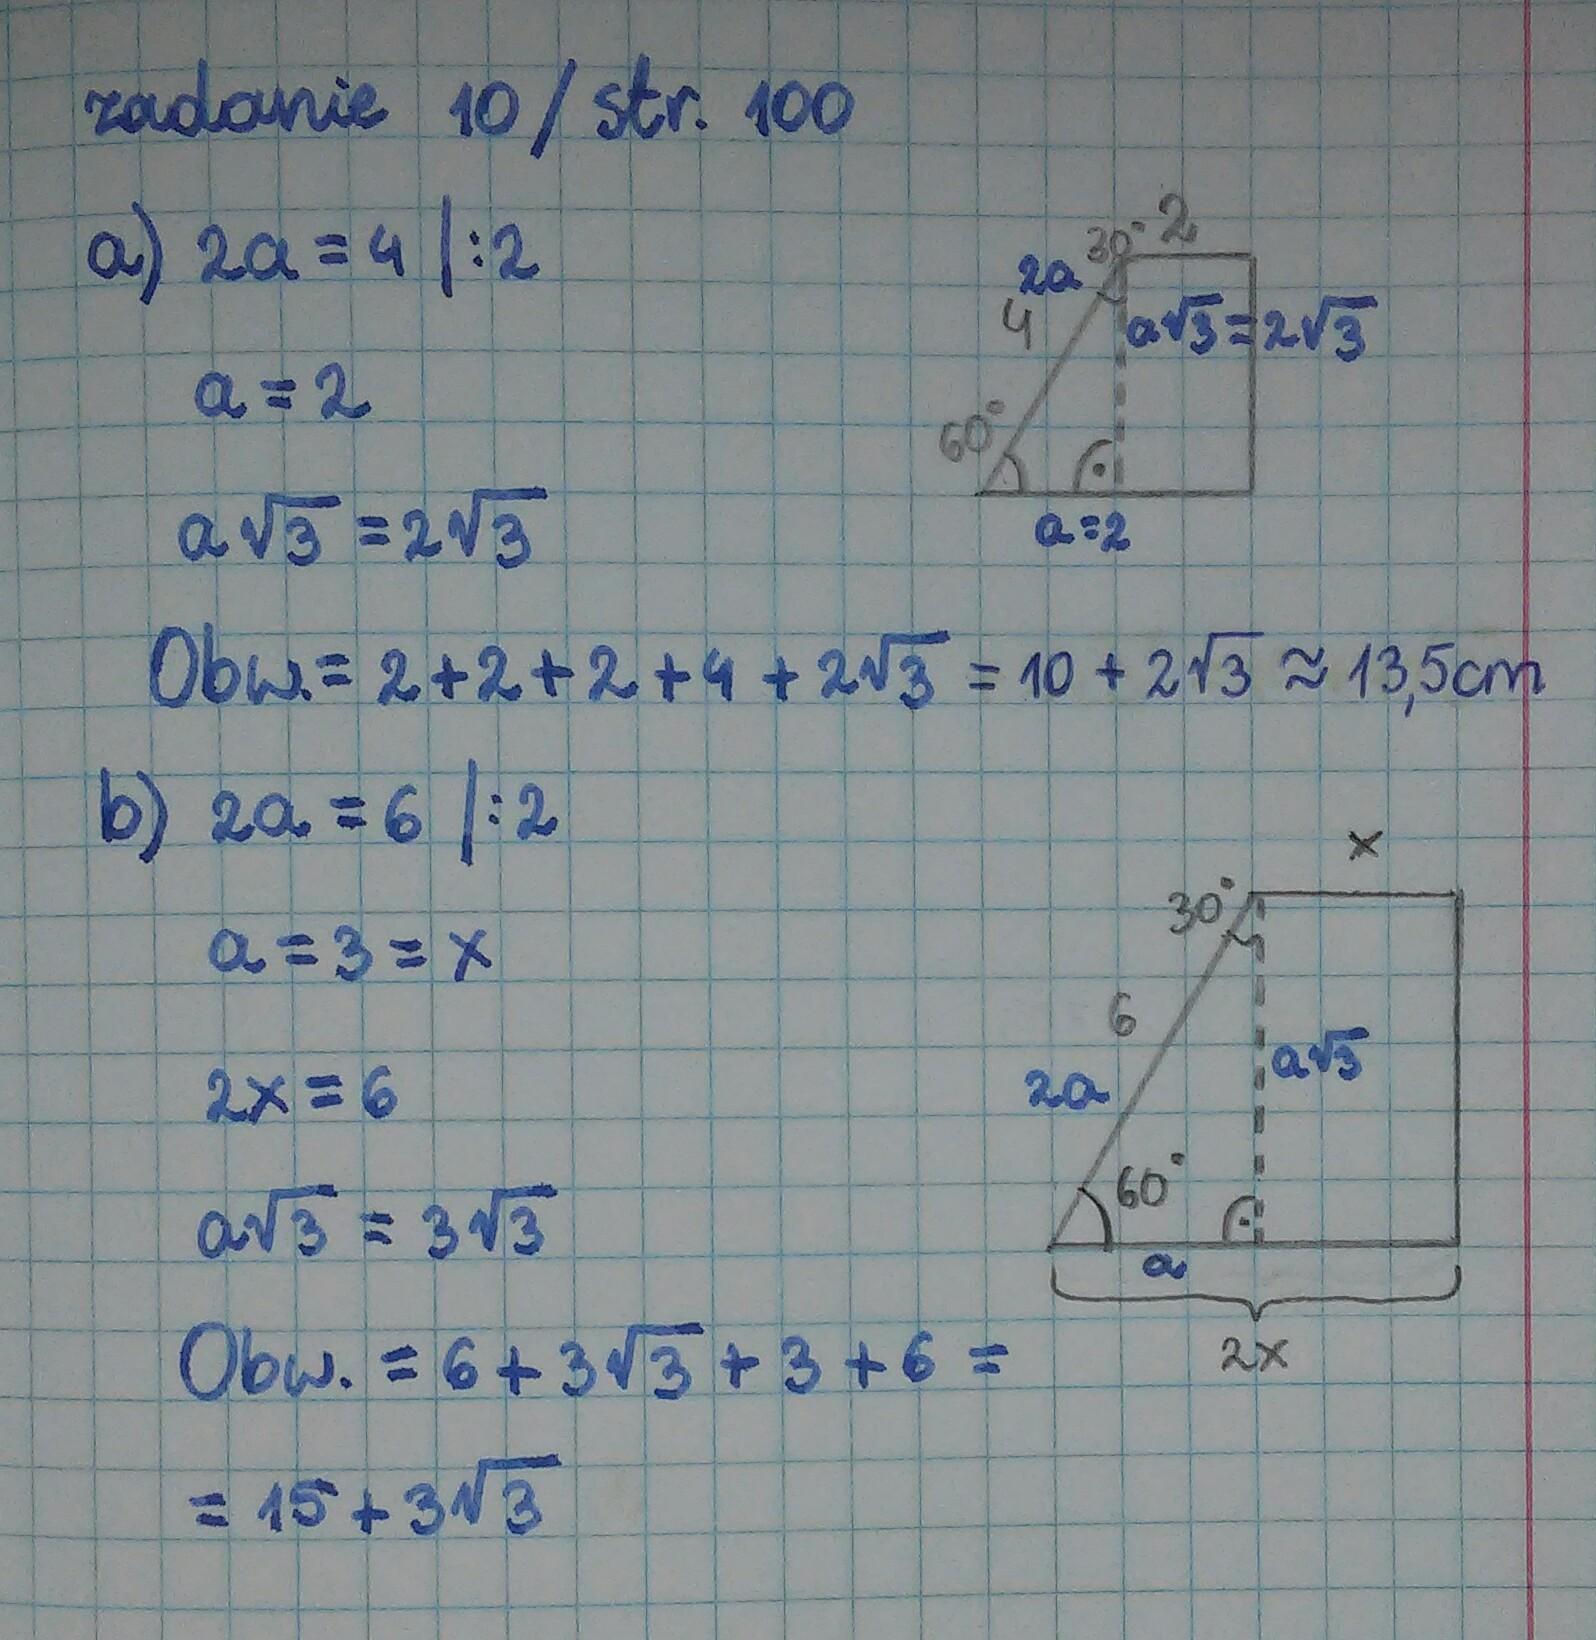 zadanie 10 / str. 100
a) 2a = 4 |:2
a = 2
a√3 = 2√3
30° 2
2a
4
a√3 = 2√3
60°
a=2
Obw. = 2 + 2 + 2 + 4 + 2√3 = 10 + 2√3 ≈ 13,5cm
b) 2a = 6 |:2
a = 3 = x
2x = 6
a√3 = 3√3
x
30°
6
a√3
2a
60°
a
2x
Obw. = 6 + 3√3 + 3 + 6 =
= 15 + 3√3